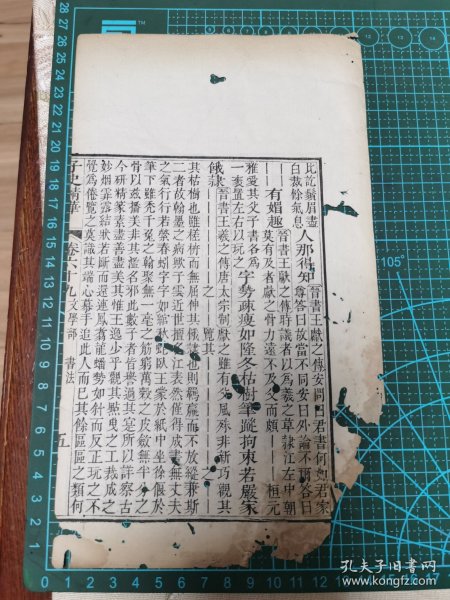 此訖鬚眉盡
白裁餘氣息
人那得知
晉書王獻之傳安問曰君書何如君家
尊答曰故當不同安曰外論不爾答曰
有媚趣
晉書王獻之傳時議者以為羲之草隸江左中朝
莫有及者獻之骨力遠不及父而頗｜｜｜桓元
雅愛其父子書各為
一袠置左右以玩之
字勢疎瘦如隆冬枯樹筆蹤拘束若嚴家
餓隸
晉書王羲之傳唐太宗制獻之雖有父風殊非新巧觀其
之 覽其 之
其枯樹也雖槎枿而無屈伸其餓隸也則羈羸而不放縱兼斯
二者故翰墨之病歟子雲近世擅名江表然僅得成書無丈夫
之氣行行若縈春蚓字字如綰秋蛇臥王濛於紙中坐徐偃於
筆下雖禿千兔之翰聚無一毫之筋窮萬穀之皮斂無半分之
骨以茲播美非其濫名邪此數子者皆譽過其實所以詳察古
今研精篆素盡善盡美其惟王逸少乎觀其點曳之工裁成之
妙烟霏露結狀若斷而還連鳳翥龍蟠勢如斜而反正玩之不
覺為倦覽之莫識其端心慕手追此人而已其餘區區之類何
子史精華 卷六十九 文學部 書法 五
105°
孔夫子旧书网
http://www.kongfz.com